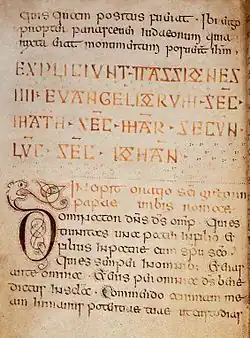 quis quem positus fuerat · Ibi ergo
propter parasceuen iudaeorum quia
iuxta erat monumentum posuerunt ihm ·
EXPLICIUNT · PASSIONES
IIII · EUANGELIORUM · SEC ·
MATH · SEC · MAR · SECUN ·
LUC · SEC · IOHAN ·
Incipit oratio sci gregorii
papae urbis romae
Dominator dns ds omps · qui es
trinitas una pater in filio et
filius in patre cum spu sco ·
qui es semper in omnibus et eras
ante omnia · et eris per omnia ds bene
dictus in secla · Commendo animam me
am in manus potentiae tuae ut custodias